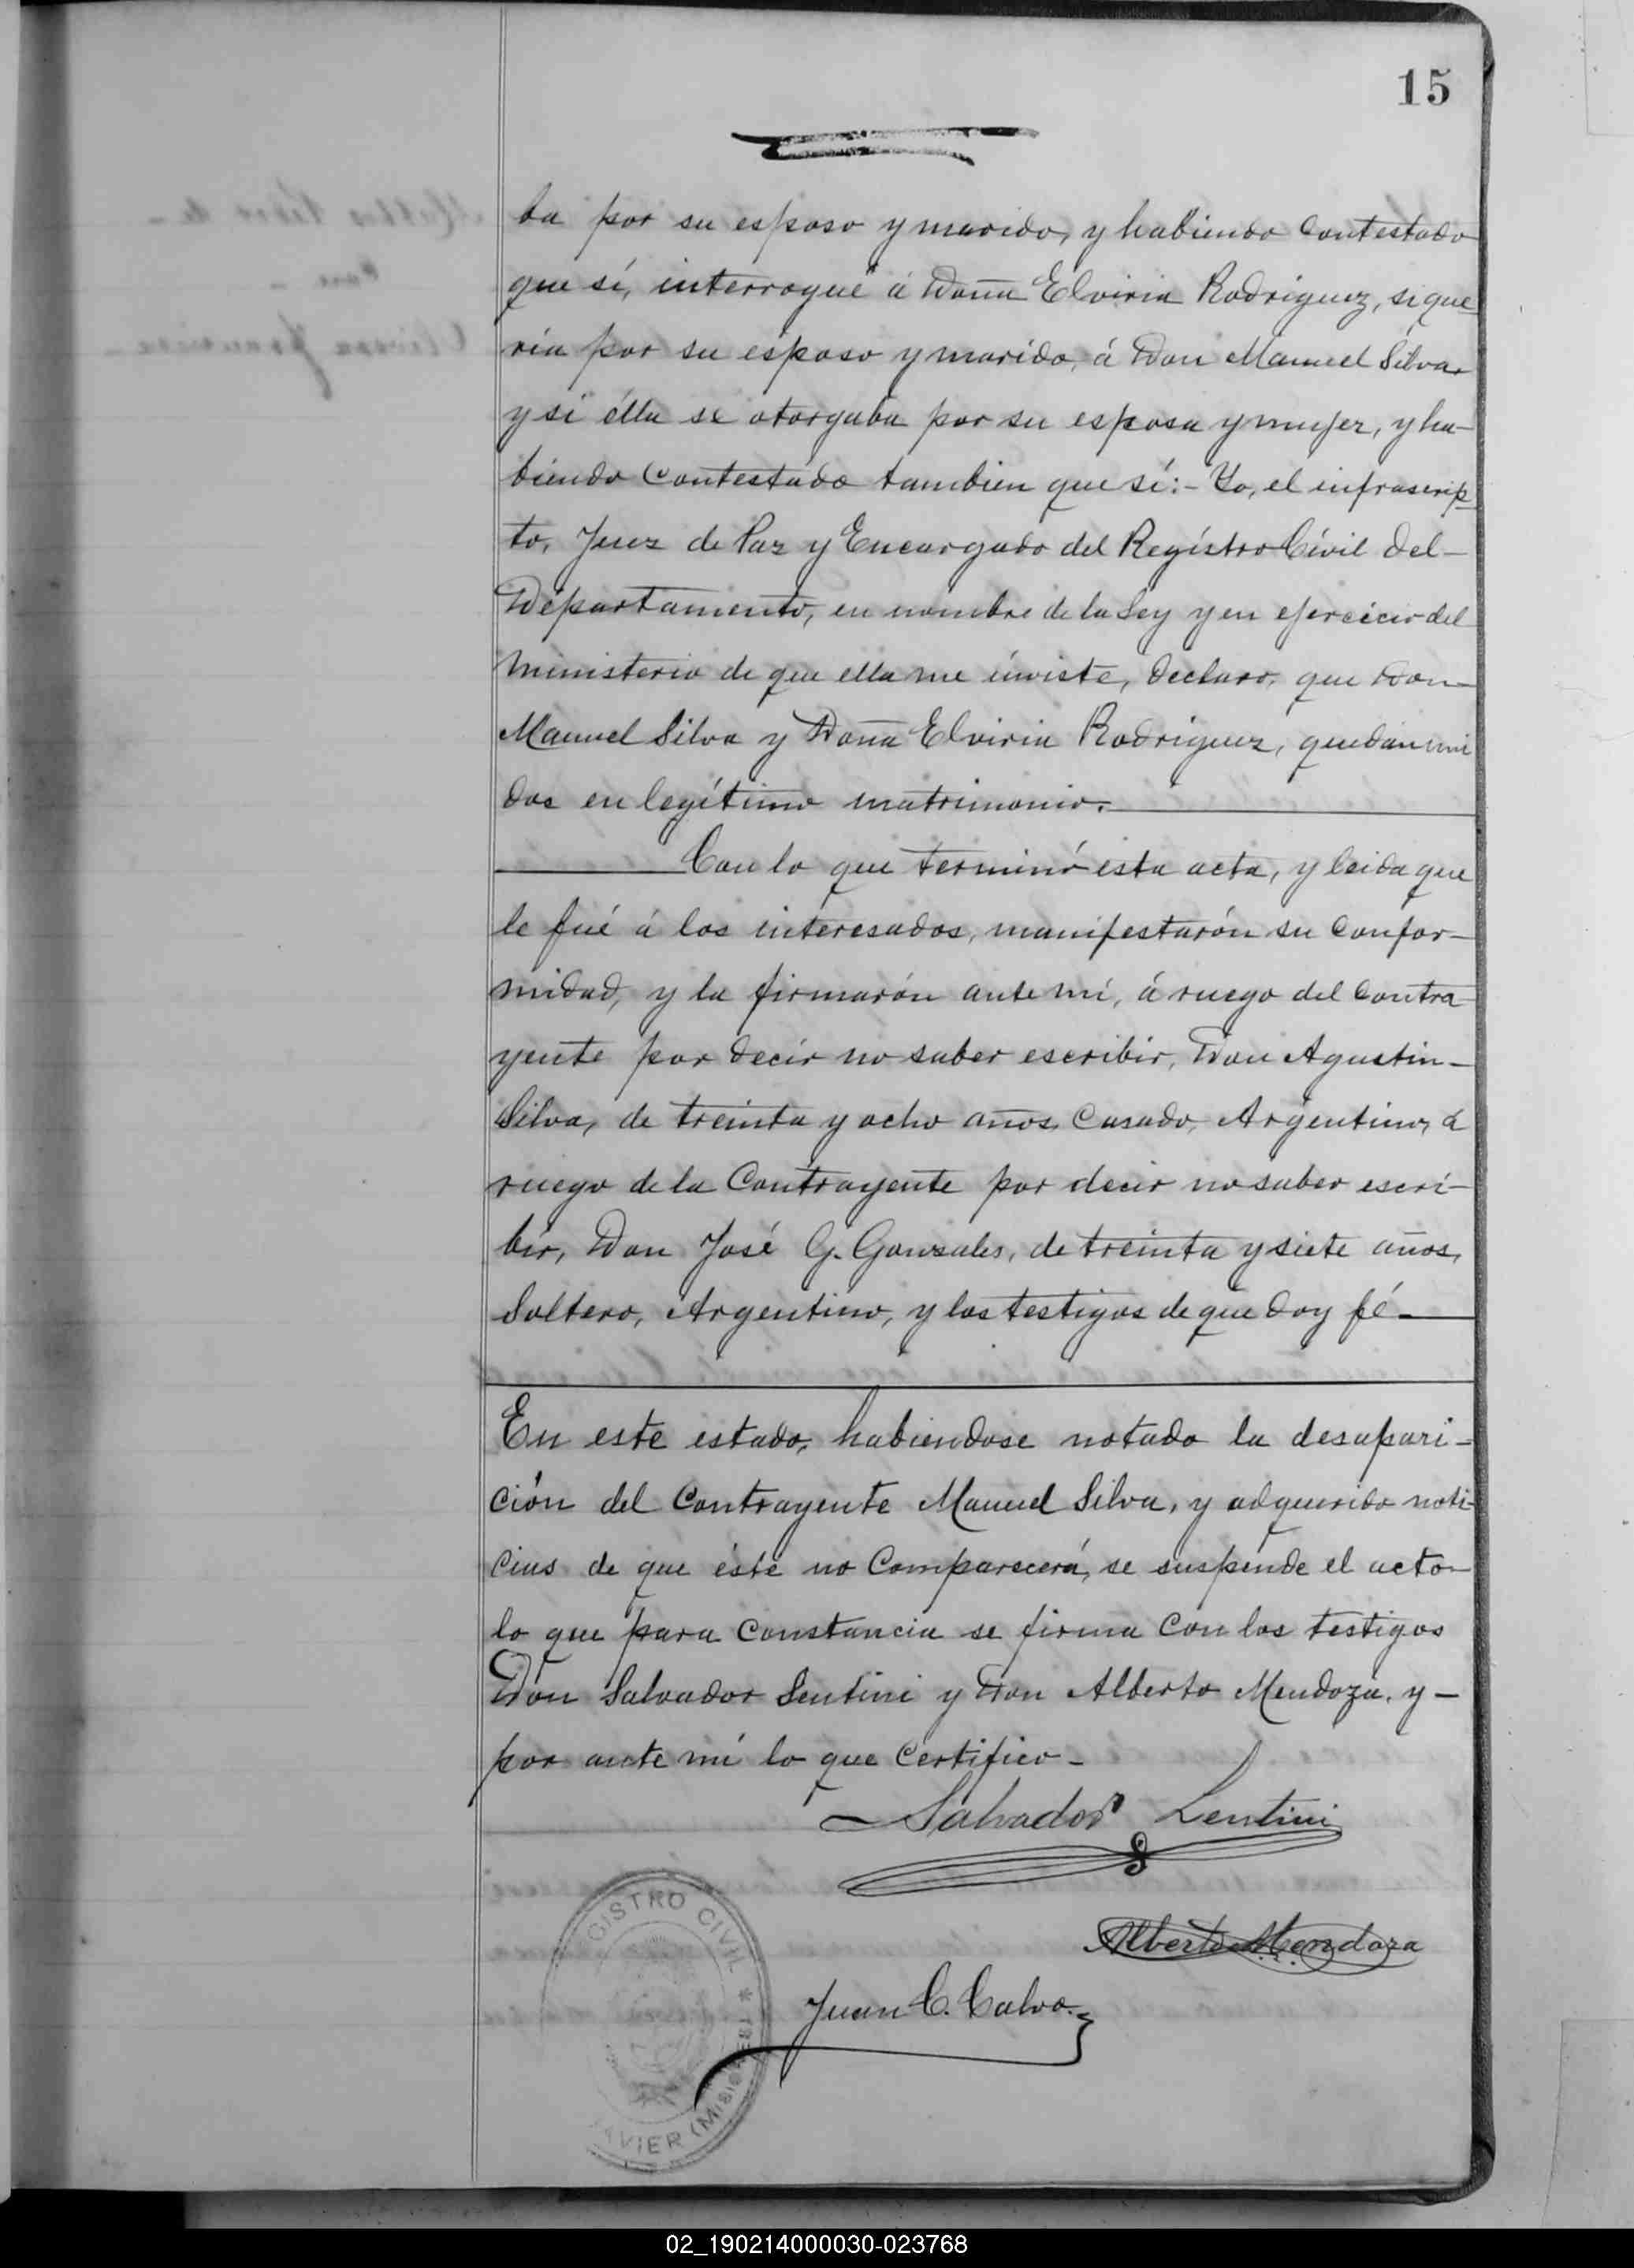 15
ba por su esposo y marido, y habiendo contestado
que sí, interrogué á Doña Elviria Rodriguez, si que
ria por su esposo y marido, á Don Manuel Silva,
y si élla se otorgaba por su esposa y mujer, y ha-
biendo contestado tambien que sí:- Yo, el infrascrip
to, Juez de Paz y Encargado del Registro Civil del-
Departamento, en nombre de la Ley y en ejercicio del
Ministerio de que ella me inviste, declaro, que Don-
Manuel Silva y Doña Elviria Rodriguez, quedan uni
dos en legítimo matrimonio.
Con lo que terminó esta acta, y leida que
le fué á los interesados, manifestarón su confor-
midad, y la firmarón ante mí, á ruego del contra
yente por decir no saber escribir, Don Agustin-
Silva, de treinta y ocho años, casado, Argentino, á
ruego de la Contrayente por decir no saber escri-
bir, Don José G. Gonzales, de treinta y siete años,
Soltero, Argentino, y los testigos de que doy fé-
En este estado, habiendose notado la desapari-
ción del Contrayente Manuel Silva, y adquirido noti-
cias de que éste no Comparecerá, se suspende el acto-
lo que para Constancia se firma Con los testigos
Don Salvador Lentini y Don Alberto Mendoza, y-
por ante mí lo que Certifico-
Salvador Lentini
Alberto Mendoza
Juan C. Calvo.
GISTRO CIVIL *
VIER (MISIONES
02_190214000030-023768